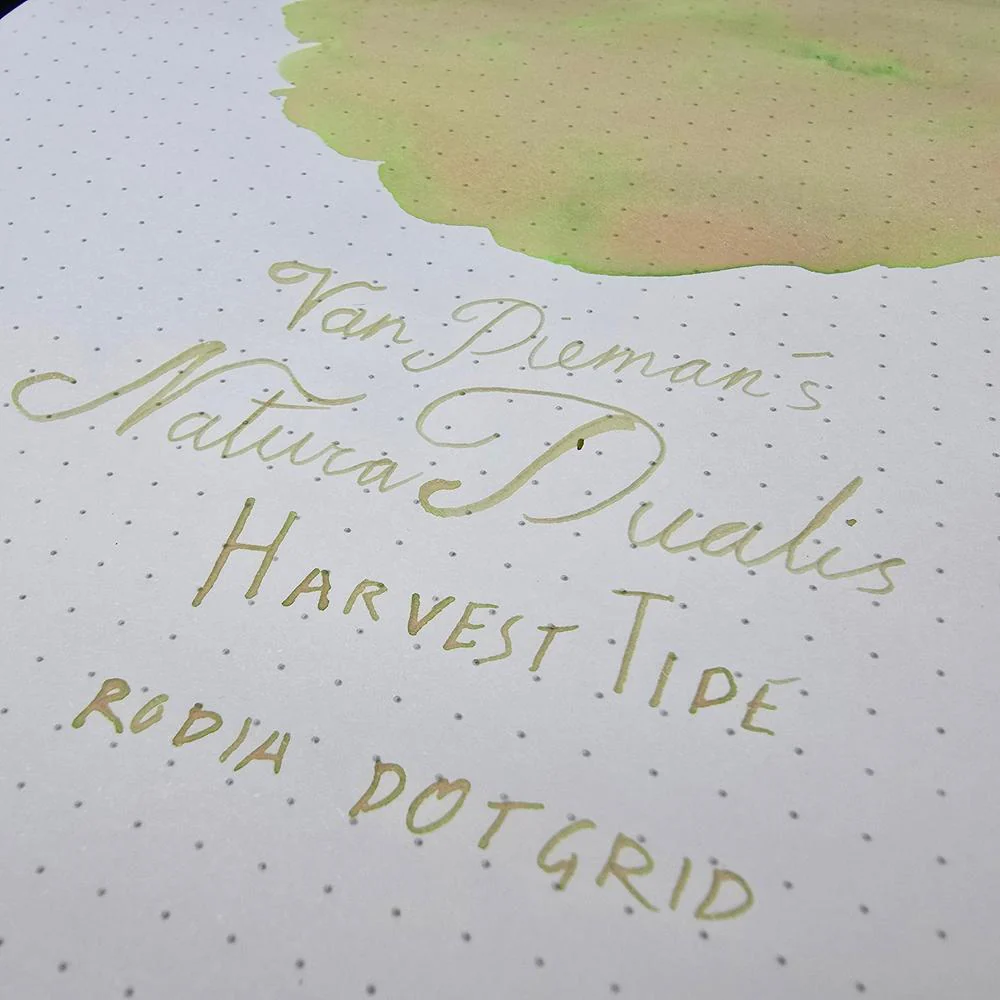 Van Dieman's
Natura Dualis
HARVEST TIDE
RODIA DOTGRID